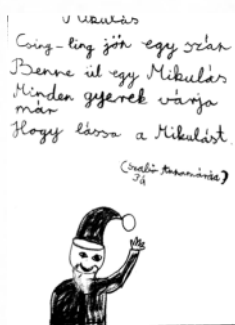 Mikulás
Csing-ling jön egy szán
Benne ül egy Mikulás
Minden gyerek várja
már
Hogy lássa a Mikulást.
(Szabó